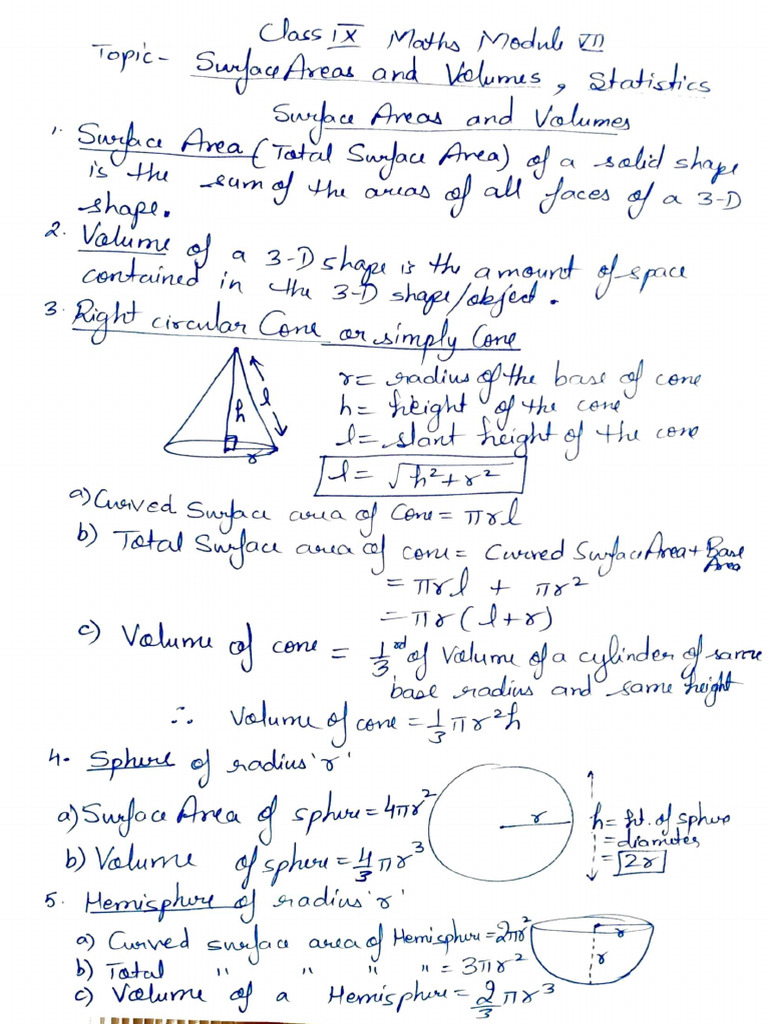 Class IX Maths Module VII
Topic- Surface Areas and Volumes, Statistics
Surface Areas and Volumes
1. Surface Area (Total Surface Area) of a solid shape
is the sum of the areas of all faces of a 3-D
shape.
2. Volume of a 3-D shape is the amount of space
contained in the 3-D shape/object.
3. Right circular Cone or simply Cone
h l r
r = radius of the base of cone
h = height of the cone
l = slant height of the cone
l = √h²+r²
a) Curved Surface area of Cone = πrl
b) Total Surface area of cone = Curved Surface Area + Base Area
= πrl + πr²
= πr(l+r)
c) Volume of cone = 1/3 rd of Volume of a cylinder of same
base radius and same height
∴ Volume of cone = 1/3 πr²h
4. Sphere of radius 'r'
a) Surface Area of sphere = 4πr²
r
h = ht. of sphere
= diameter
= 2r
b) Volume of sphere = 4/3 πr³
5. Hemisphere of radius 'r'
a) Curved surface area of Hemisphere = 2πr²
r
r
b) Total " " " " = 3πr²
c) Volume of a Hemisphere = 2/3 πr³